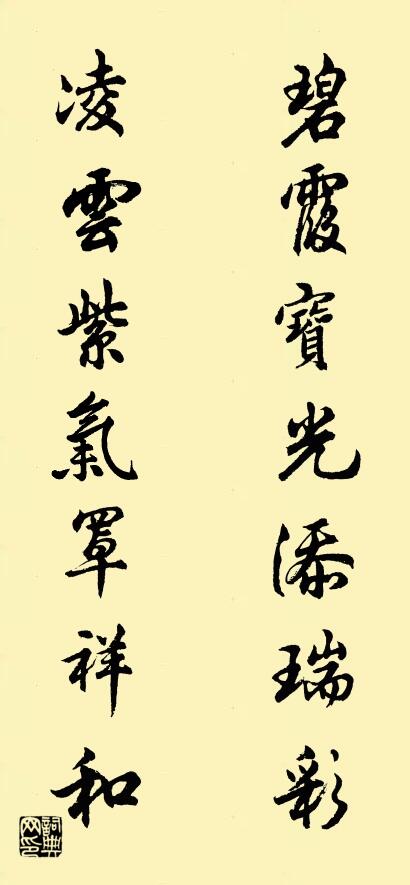 碧霞寶光添瑞彩
凌雲紫氣罩祥和
詞典网印